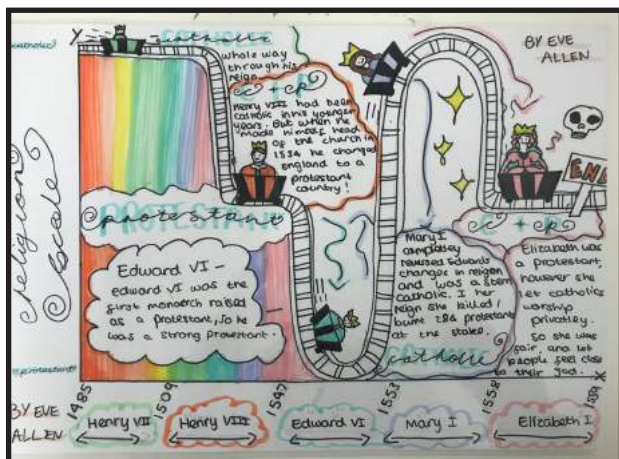 (catholic)
Y
CATHOLIC
catholic
whole way
through his
reign
BY EVE
ALLEN
C + P
Henry VIII had been
catholic in his younger
years. But when he
made himself head
of the church in
1534 he changed
england to a
protestant
country!
END
religion
scale
PROTESTANT
protestant
Edward VI –
edward VI was the
first monarch raised
as a protestant, so he
was a strong protestant.
Mary I
completely
reversed Edwards
changes in reigon
and was a stern
catholic. I her
reign she killed/
burnt 284 protestants
at the stake.
catholic
C + P
Elizabeth was
a protestant,
however she
let catholics
worship
privatley.
So she was
fair, and let
people feel close
to their god.
(protestant)
1485
1509
1547
1553
1558
X
BY EVE
ALLEN
Henry VII
Henry VIII
Edward VI
Mary I
Elizabeth I